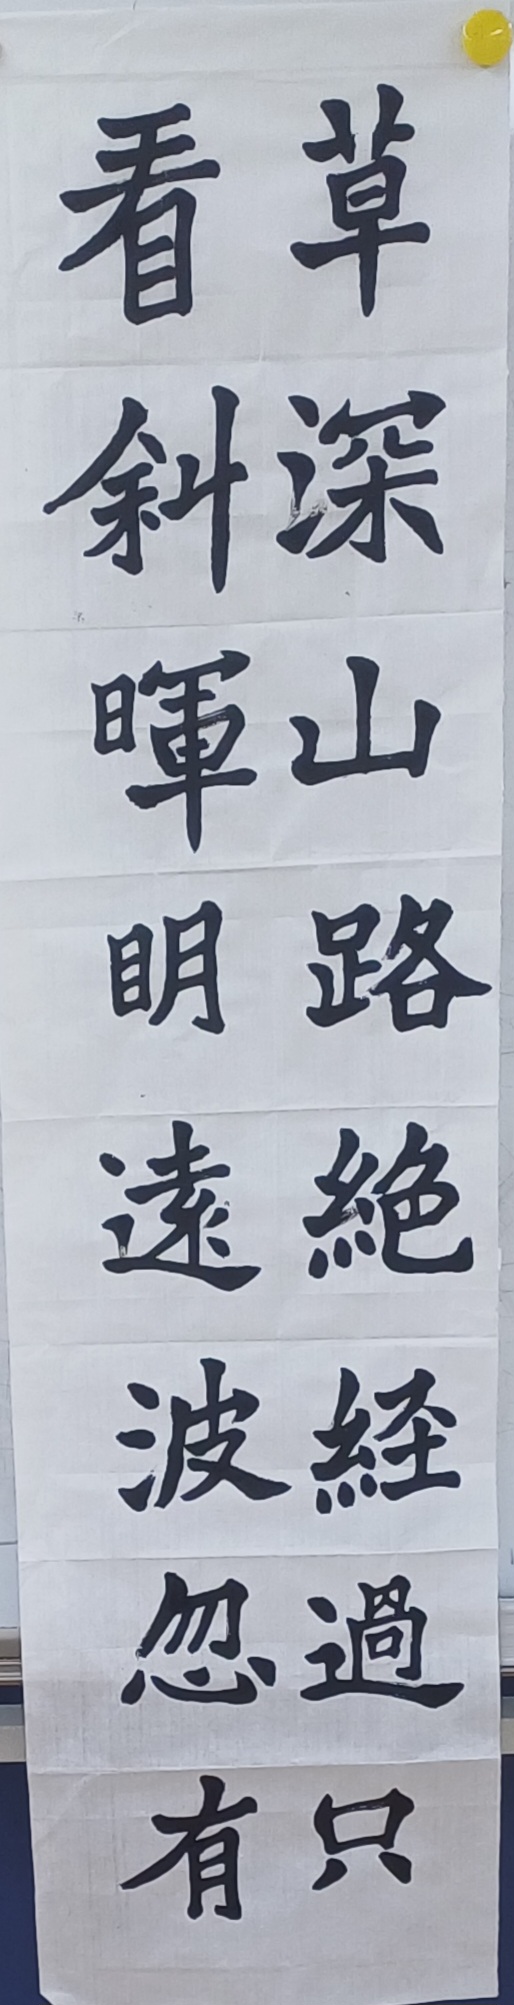 草深山路絶経過只
看斜暉明遠波忽有